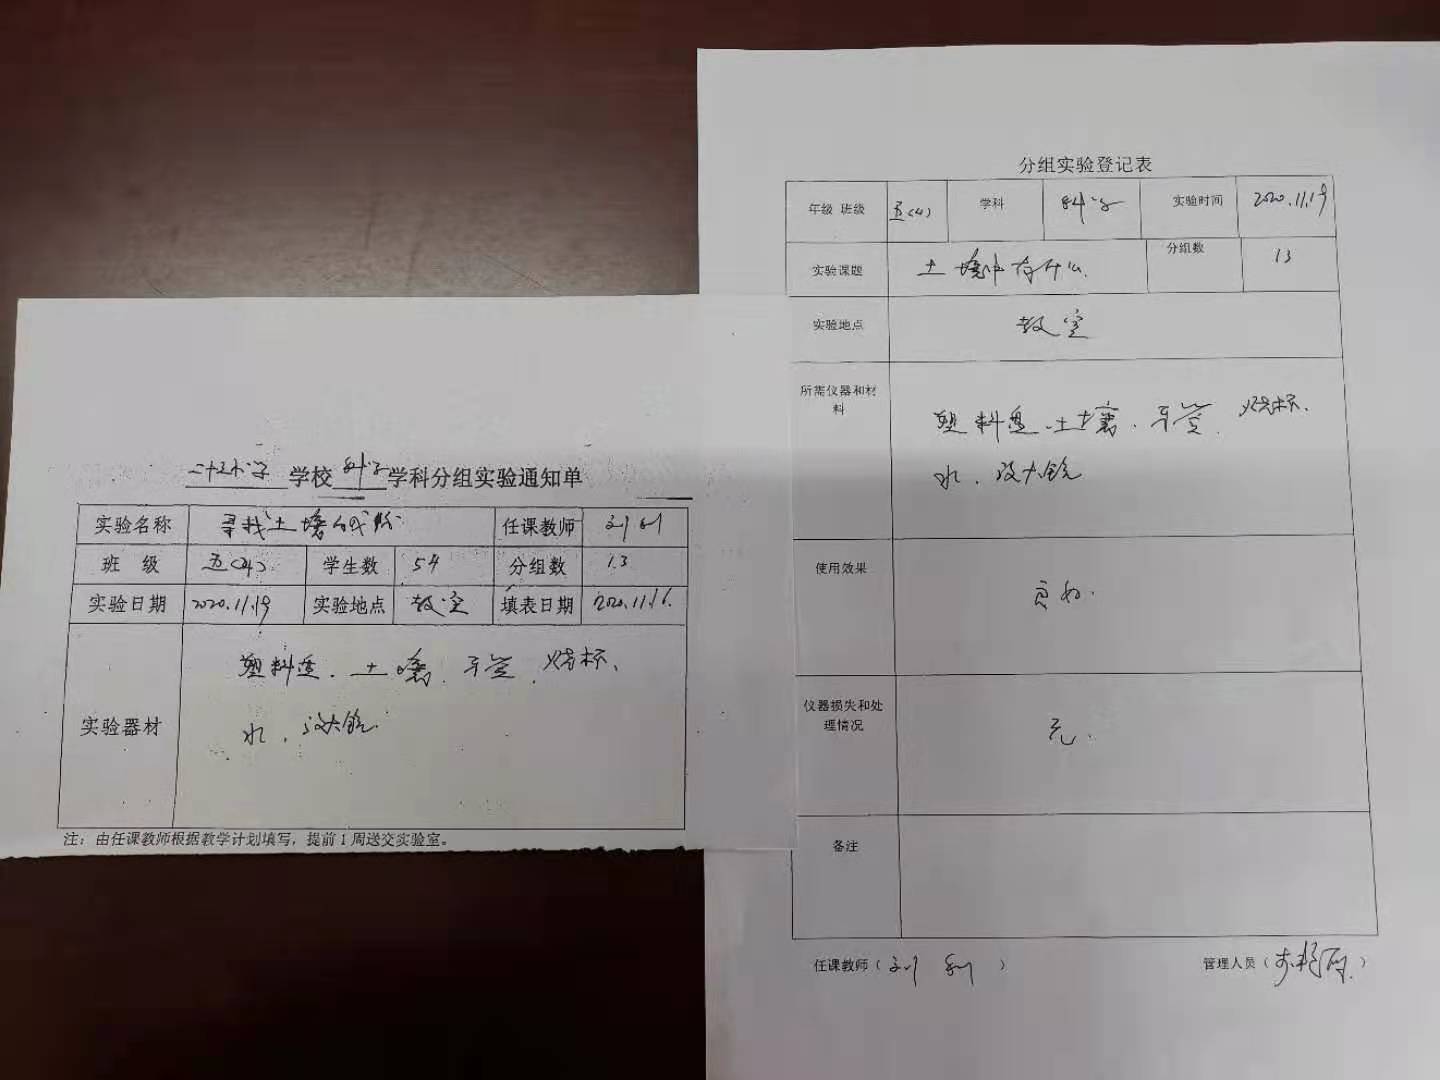 学校 科学 学科分组实验通知单
实验名称 寻找土壤的成份 任课教师 刘利
班 级 五(4) 学生数 54 分组数 13
实验日期 2020.11.19 实验地点 教室 填表日期 2020.11.16.
实验器材 塑料盘、土壤、牙签、烧杯、
水、放大镜
注：由任课教师根据教学计划填写，提前1周送交实验室。
分组实验登记表
年级 班级 五(4) 学科 科学 实验时间 2020.11.19
实验课题 土壤中有什么. 分组数 13
实验地点 教室
所需仪器和材料 塑料盘、土壤、牙签、烧杯、
水、放大镜
使用效果 良好.
仪器损失和处理情况 无.
备注
任课教师（刘 利 ） 管理人员（ ）